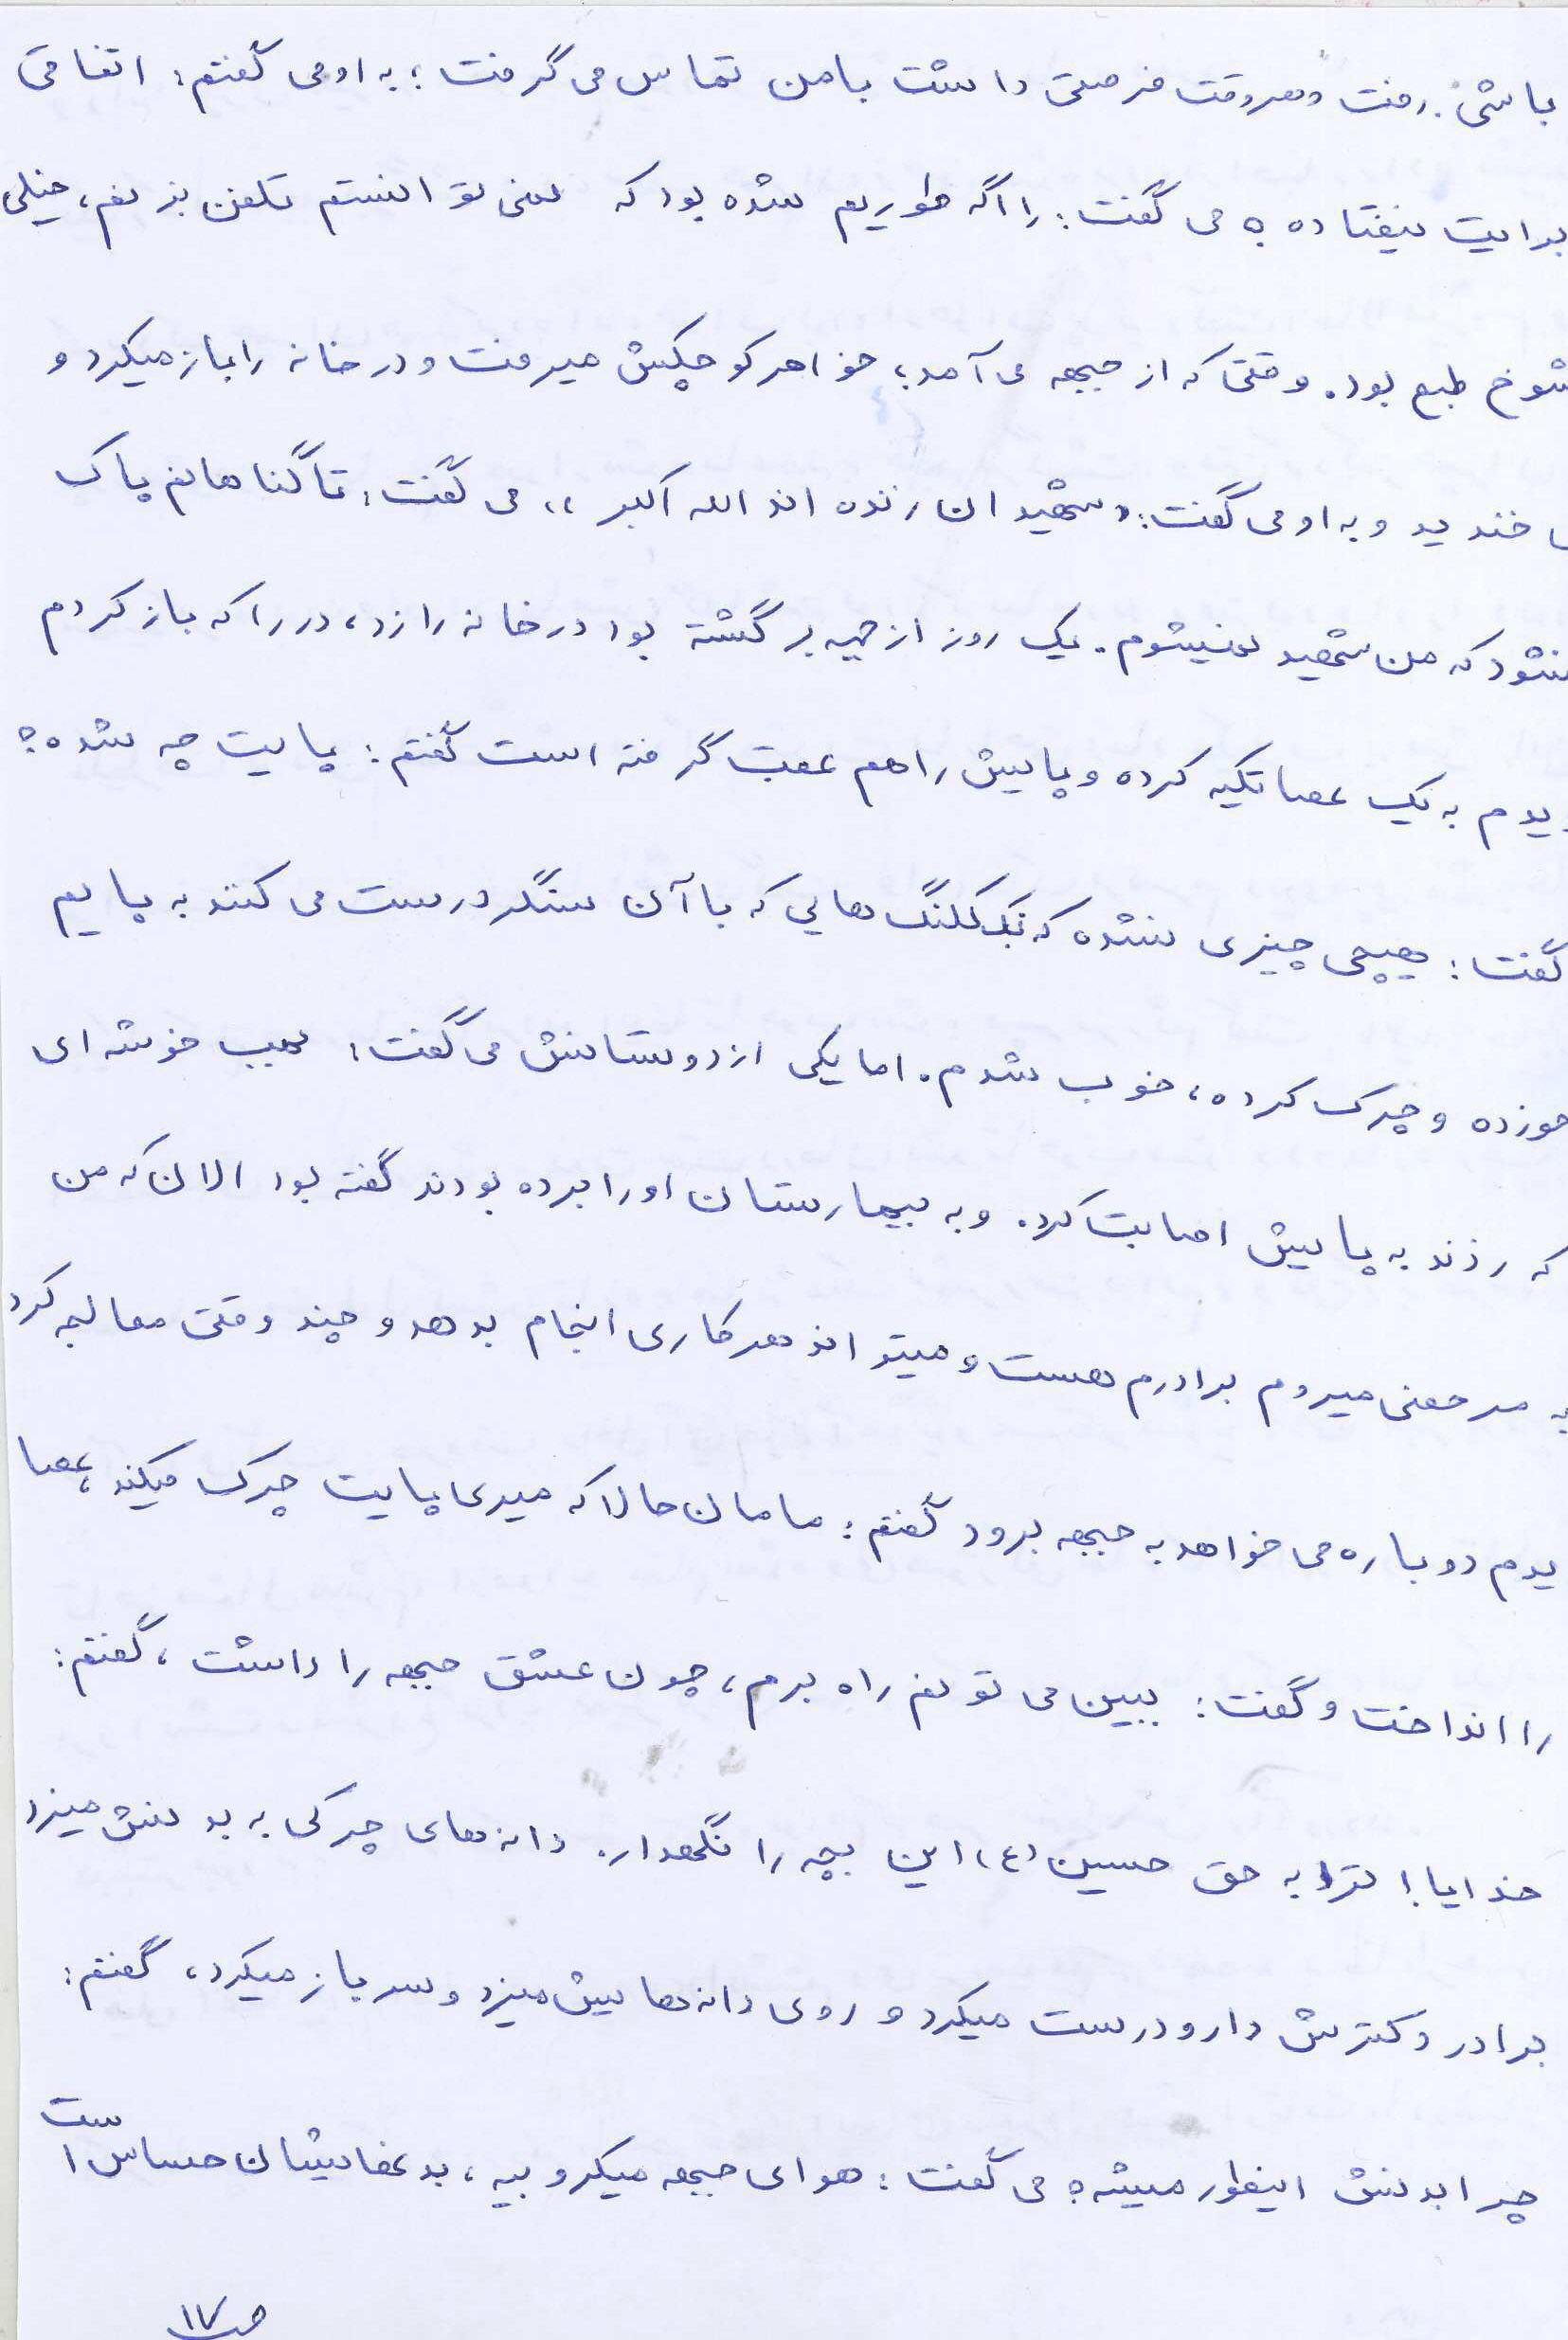 باشی. رفت و هر وقت فرصتی داشت با من تماس می گرفت؛ به او می گفتم: اتفاقی
برایت نیفتاده؟ می گفت: را اگه طوریم شده بود که نمی توانستم تلفن بزنم، خیلی
شوخ طبع بود. وقتی که از جبهه می آمد؛ خواهر کوچکش میرفت و در خانه را باز میکرد و
می خندید و به او می گفت: «شهیدان زنده اند الله اکبر»، می گفت: تا گناهانم پاک
نشود که من شهید نمیشوم. یک روز از جبهه برگشته بود در خانه را زد، در را که باز کردم
دیدم به یک عصا تکیه کرده و پایش را هم عقب گرفته است گفتم: پایت چه شده؟
گفت: هیچی چیزی نشده که نک کلنگ هایی که با آن سنگر درست می کنند به پایم
خورده و چرک کرده، خوب شدم. اما یکی از دوستانش می گفت: بمب خوشه ای
که زدند به پایش اصابت کرد. و به بیمارستان او را برده بودند گفته بود الان که من
به مرخصی میروم برادرم هست و میتواند هر کاری انجام بدهد و چند وقتی معالجه کرد
دیدم دوباره می خواهد به جبهه برود گفتم: مامان حالا که میری پایت چرک میکند، عصا
را انداخت و گفت: ببین می تونم راه برم، چون عشق جبهه را داشت، گفتم:
خدایا! ترا به حق حسین (ع) این بچه را نگهدار. دانه های چرکی به بدنش میزد
برادر دکترش دارو درست میکرد و روی دانه هایش میزد و سر باز میکرد، گفتم:
چرا بدنش اینطور میشه؟ می گفت: هوای جبهه میکروبیه، بدنهایشان حساس است
ص ۱۷